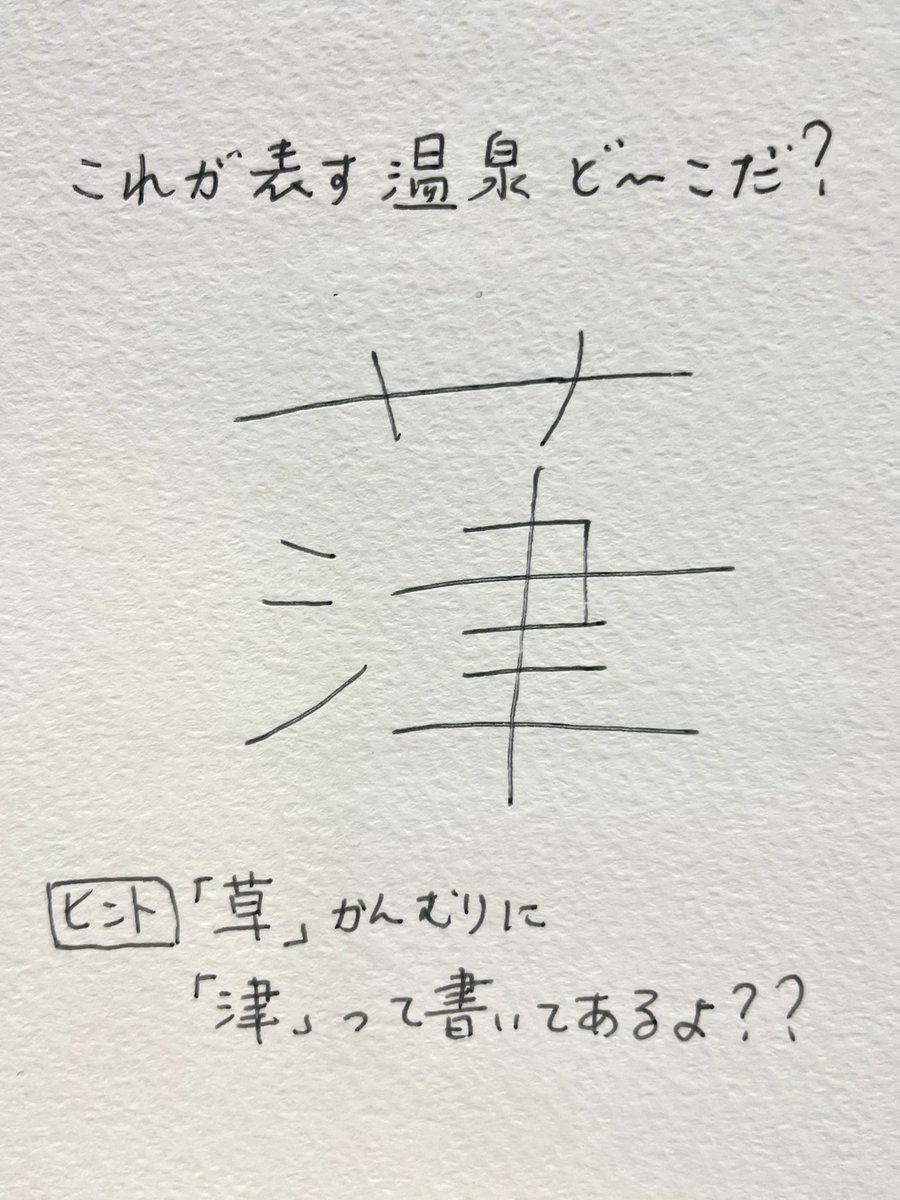 これが表す温泉ど〜こだ？
葏
ヒント「草」かんむりに
「津」って書いてあるよ？？